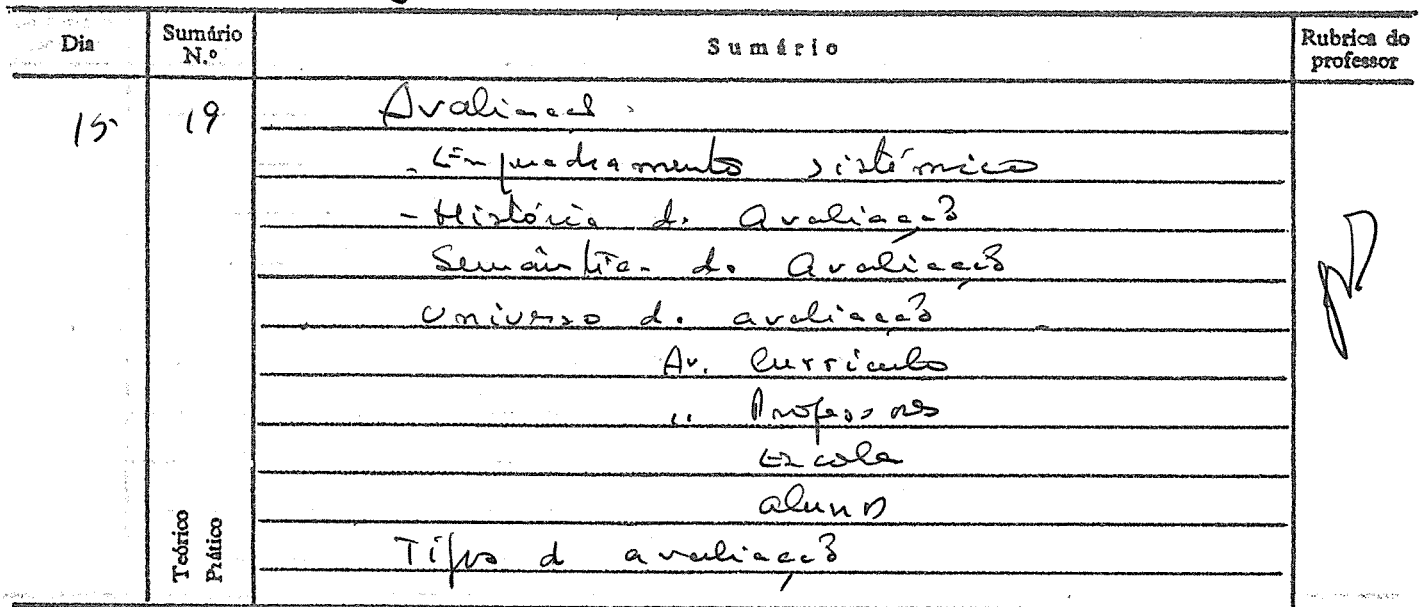 Dia Sumário N.º Sumário Rubrica do professor
15 19 Avaliação.
- Enquadramento sistémico
- História da Avaliação
Semântica da Avaliação
Universo da avaliação
Av. Currículo
" Professores
Escola
aluno
Tipos d avaliação
Teórico
Prático